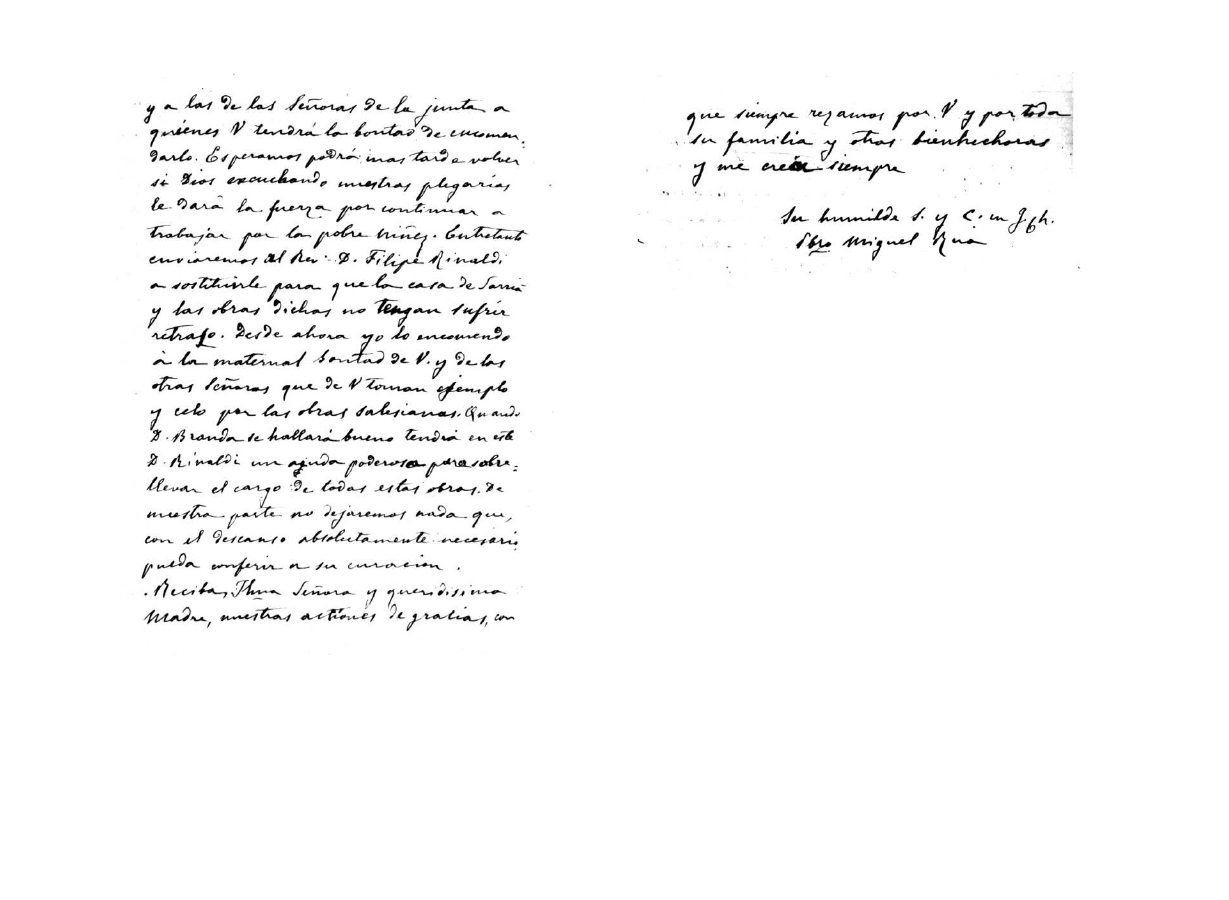 y a las de las Señoras de la junta a
quiénes V tendrá la bontad de encomen-
darlo. Esperamos podrá mas tarde volver
si Dios escuchando nuestras plegarias
le dará la fuerza por continuar a
trabajar por la pobre niñez. Entretanto
enviaremos al Rev. D. Filipe Rinaldi
a sostituirle para que la casa de Sarriá
y las obras dichas no tengan sufrir
retraso. Desde ahora yo lo encomendo
à la maternal bontad de V. y de las
otras Señoras que de V toman ejemplo
y celo por las obras salesianas. Quando
D. Branda se hallará bueno tendrá en este
D. Rinaldi un ajuda poderosa para sobre=
llevar el cargo de todas estas obras. De
nuestra parte no dejaremos nada que,
con el descanso absolutamente necesario
pueda conferir a su curacion.
Reciba, Illma Señora y queridisima
Madre, nuestras actiones de gratias, con
que siempre rezamos por V y por toda
su familia y otras bienhechoras
y me crea siempre
Su humilde S. y C. in J. Ch.
Sbro Miguel Rua